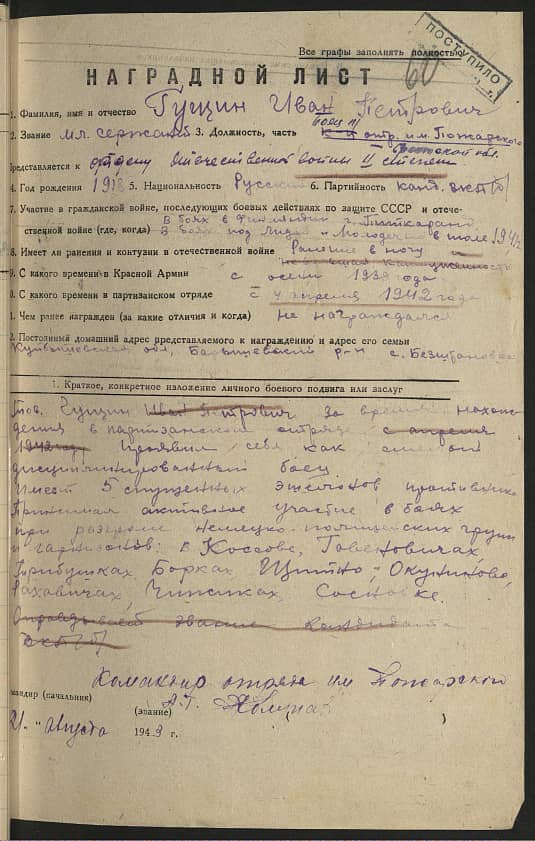 Все графы заполнять полностью
ПОСТУПИЛО
60
НАГРАДНОЙ ЛИСТ
1. Фамилия, имя и отчество Гущин Иван Петрович
боец
2. Звание мл. сержант 3. Должность, часть отр. им. Пожарского
Брестской обл.
Представляется к ордену Отечественной войны II степени
4. Год рождения 1918 5. Национальность Русский 6. Партийность канд. ВКП(б)
7. Участие в гражданской войне, последующих боевых действиях по защите СССР и отече-
В боях в Финляндии г. Питкаранта
ственной войне (где, когда) В боях под Лида и Молодечно в июле 1941
8. Имеет ли ранения и контузии в отечественной войне Ранение в ногу и
9. С какого времени в Красной Армии с осени 1939 года
0. С какого времени в партизанском отряде с 4 апреля 1942 года
1. Чем ранее награжден (за какие отличия и когда) не награждался
2. Постоянный домашний адрес представляемого к награждению и адрес его семьи
Куйбышевская обл, Барышевский р-н с.
1. Краткое, конкретное изложение личного боевого подвига или заслуг
Тов. Гущин Иван Петрович за время нахож-
дения в партизанском отряде с апреля
1942 года проявил себя как смелый
дисциплинированный боец
Имеет 5 спущенных эшелонов противника
Принимал активное участие в боях
при разгроме немецко-полицейских групп
и гарнизонов: в Коссове, Гавеновичах,
Трибушках, Борках, Щитно, Окуниново,
Сосновке.
Оправдывает звание кандидата
ВКП(б)
Командир отряда им Пожарского
мандир (начальник)
(звание)
21. " Августа 1943 г.